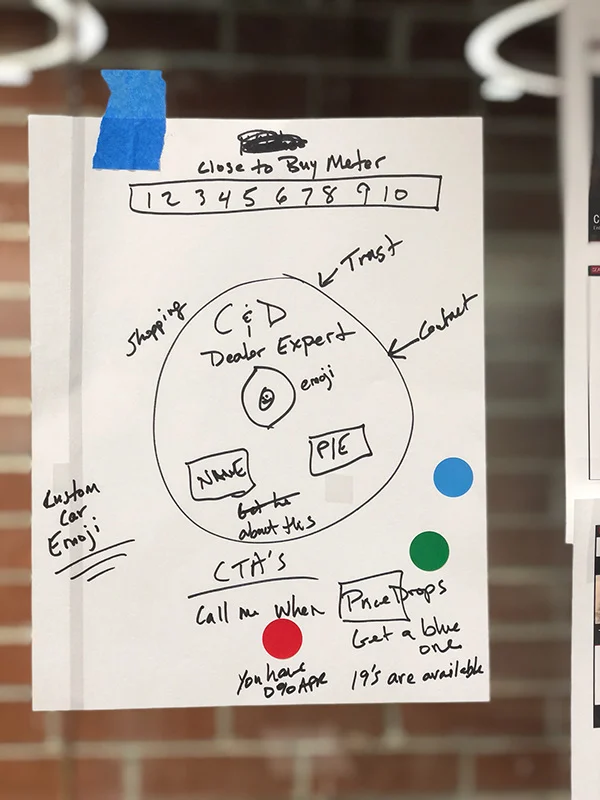 Close to Buy Meter
1 2 3 4 5 6 7 8 9 10
Trust
Shopping
Contact
C & D
Dealer Expert
emoji
NAME
P/E
about this
Custom
Car
Emoji
CTA's
Call me when
Price Drops
Get a blue
one
You have
0% APR
19's are available